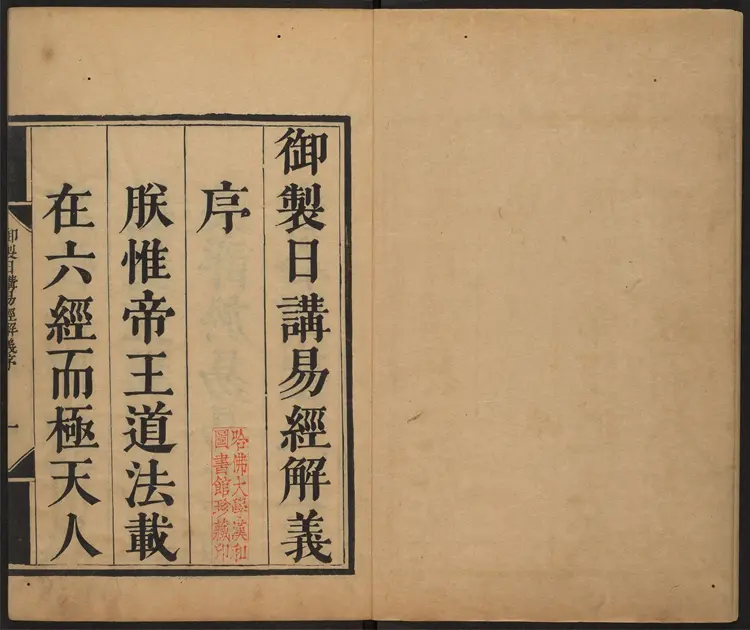 御製日講易經解義
序
朕惟帝王道法載
在六經而極天人
御製日講易經解義序
一
哈佛大學漢和
圖書館珍藏印